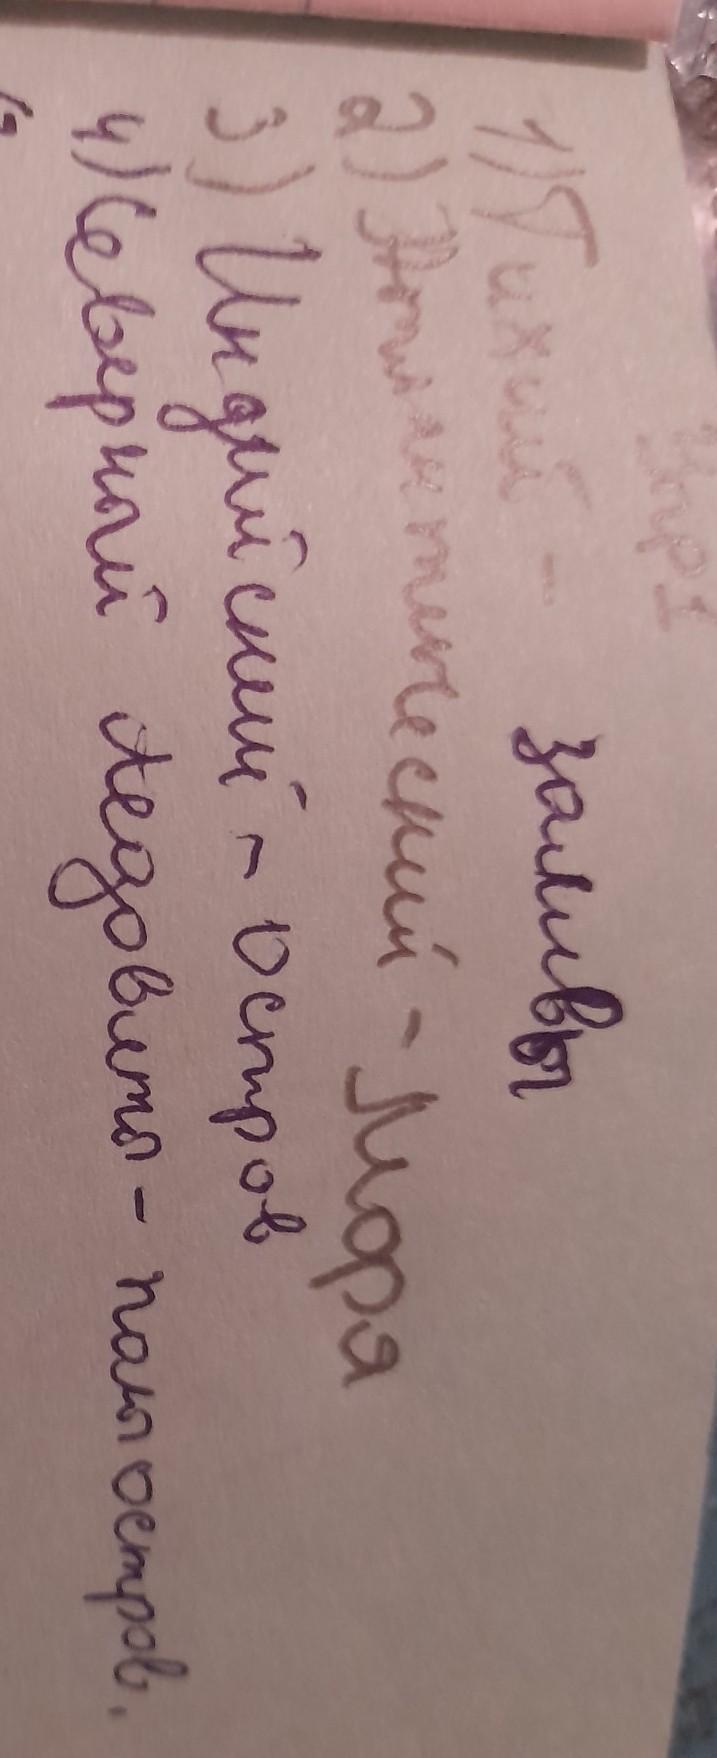 Упр1
1) Тихий - заливы
2) Атлантический - Моря
3) Индийский - остров
4) Северный Ледовиты - палы остров.